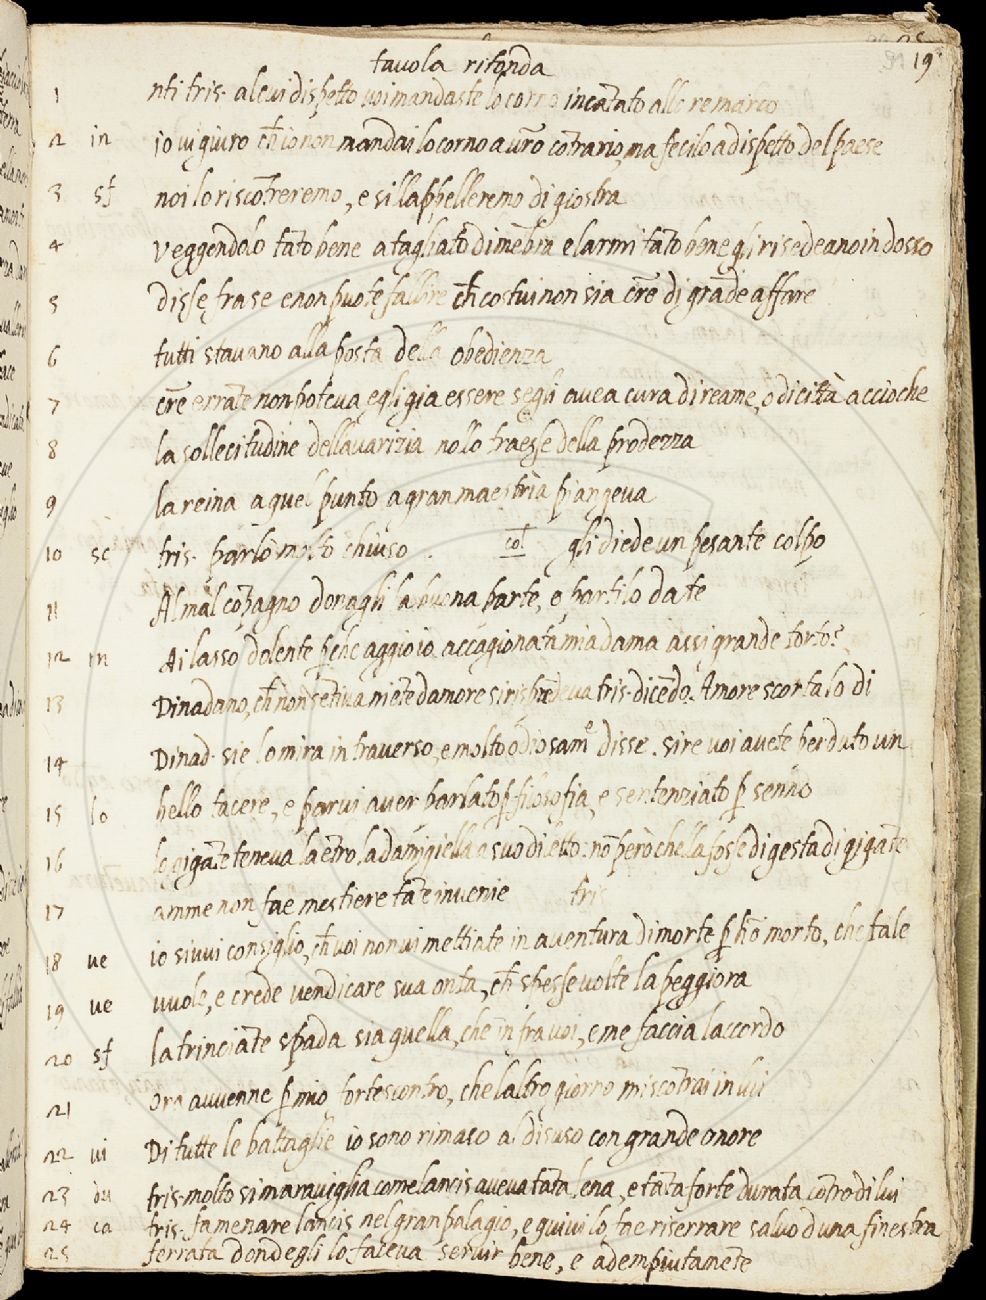 19
tavola ritonda
1 nti tris. a le vi dispetto voi mandaste lo corno incãtato allo re marco
2 in io vi giuro ch̃ io non mandai lo corno a vr̃o cõtrario, ma fecilo a dispetto del paese
3 sf noi lo riscõtreremo, e si llappelleremo di giostra
4 veggendolo tãto bene a tagliato di mẽbra e larmi tãto bene gli risedeano in dosso
5 disse fra se e non puote fallire ch̃ costui non sia cr̃e di grãde affare
6 tutti stavano alla posta della obedienza
7 cr̃e errãte non poteva egli gia essere segli avea cura di reame, o di città acciò che
8 la sollecitudine dellavarizia nollo traesse della prodezza
9 la reina a quel punto a gran maestria piangeva
10 sc tris. parlò molto chiuso . col gli diede un pesante colpo
11 Al mal cõpagno donagli la buona parte, e partilo da te
12 m Ai lasso dolente p̱che aggio io accagionata mia dama assi grande torto?
13 Dinadano, ch̃ non sẽtiva niẽte damore si riprẽdeva tris. dicẽdo. Amore scortalo di
14 Dinad. sie lo mira in traverso, e molto odiosamᵉ disse. sire voi avete perduto un
15 lo bello tacere, e parvi aver parlato p̱ filosofia, e sentenziato p̱ senno
16 lo gigãte teneva la ẽtro la damigiella a suo diletto. nõ però chella fosse di gesta di gigãte
17 amme non fae mestiere tãte invenie tris
18 ve io sivvi consiglio, ch̃ voi non vi mettiate in aventura di morte p̱ hõ morto, che tale
19 ve vuole, e crede vendicare sua onta, ch̃ spesse volte la peggiora
20 sf la trinciãte spada sia quella, che in fra voi, e me faccia laccordo
21 Ora avvenne p̱ mio forte scontro, che laltro giorno mi scõtrai in lui
22 vi Di tutte le battaglie io sono rimaso al disuso con grande onore
23 du tris. molto si maraviglia come lancis aveva tãta lena, e tãta forte durata cõtro di lui
24 ca tris. fa menare lancis nel gran palagio, e quivi lo fae riserrare salvo duna finestra
25 ferrata dondegli lo faceva servir bene, e adempiutamẽte